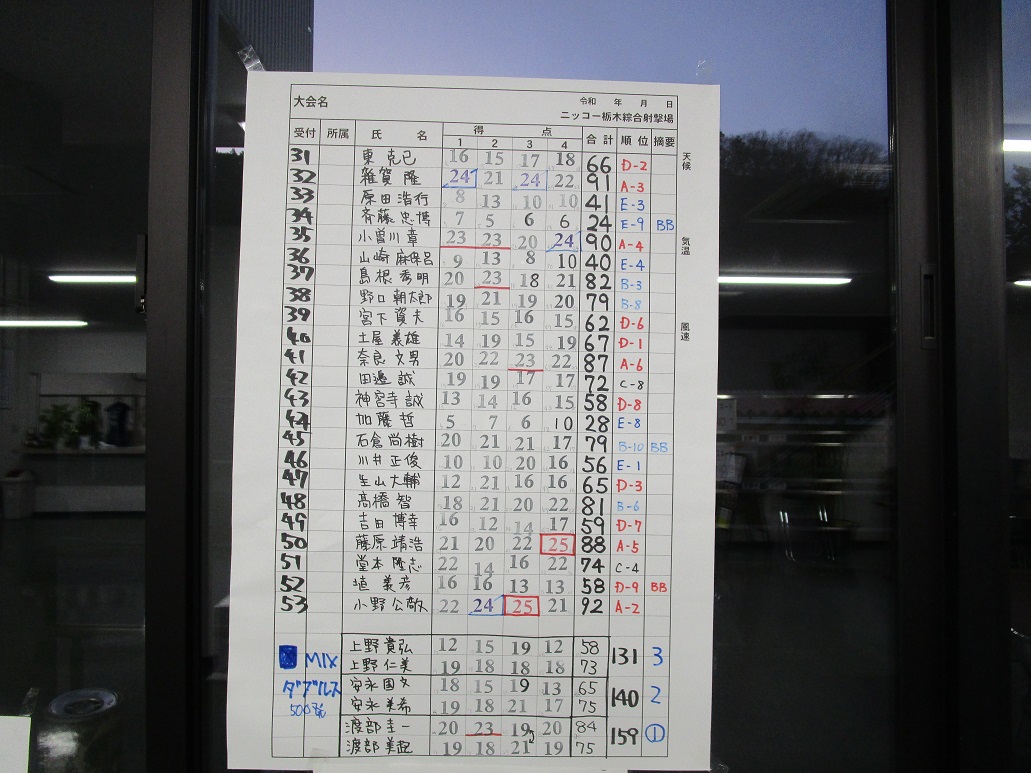 大会名
令和 年 月 日
ニッコー栃木綜合射撃場
受付 所属 氏 名 得 点 合計 順位 摘要
1 2 3 4
天候
気温
風速
31 東 克己 16 15 17 18 66 D-2
32 雑賀 隆 24 21 24 22 91 A-3
33 原田 浩行 8 13 10 10 41 E-3
34 斉藤 忠博 7 5 6 6 24 E-9 BB
35 小曽川 章 23 23 20 24 90 A-4
36 山崎 麻保呂 9 13 8 10 40 E-4
37 島根 秀明 20 23 18 21 82 B-3
38 野口 朝太郎 19 21 19 20 79 B-8
39 宮下 資夫 16 15 16 15 62 D-6
40 土屋 義雄 14 19 15 19 67 D-1
41 奈良 文男 20 22 23 22 87 A-6
42 田邉 誠 19 19 17 17 72 C-8
43 神宮寺 誠 13 14 16 15 58 D-8
44 加藤 哲 5 7 6 10 28 E-8
45 石倉 尚樹 20 21 21 17 79 B-10 BB
46 川井 正俊 10 10 20 16 56 E-1
47 生山 大輔 12 21 16 16 65 D-3
48 高橋 智 18 21 20 22 81 B-6
49 吉田 博幸 16 12 14 17 59 D-7
50 藤原 靖浩 21 20 22 25 88 A-5
51 堂本 隆志 22 14 16 22 74 C-4
52 義彦 16 16 13 13 58 D-9 BB
53 小野 公敵 22 24 25 21 92 A-2
MIX
ダブルス
上野 貴弘 12 15 19 12 58
上野 仁美 19 18 18 18 73
131 3
安永 国文 18 15 19 13 65
安永 美希 19 18 21 17 75
140 2
渡部 圭一 20 23 19 20 84
渡部 美起 19 18 21 19 75
159 ①